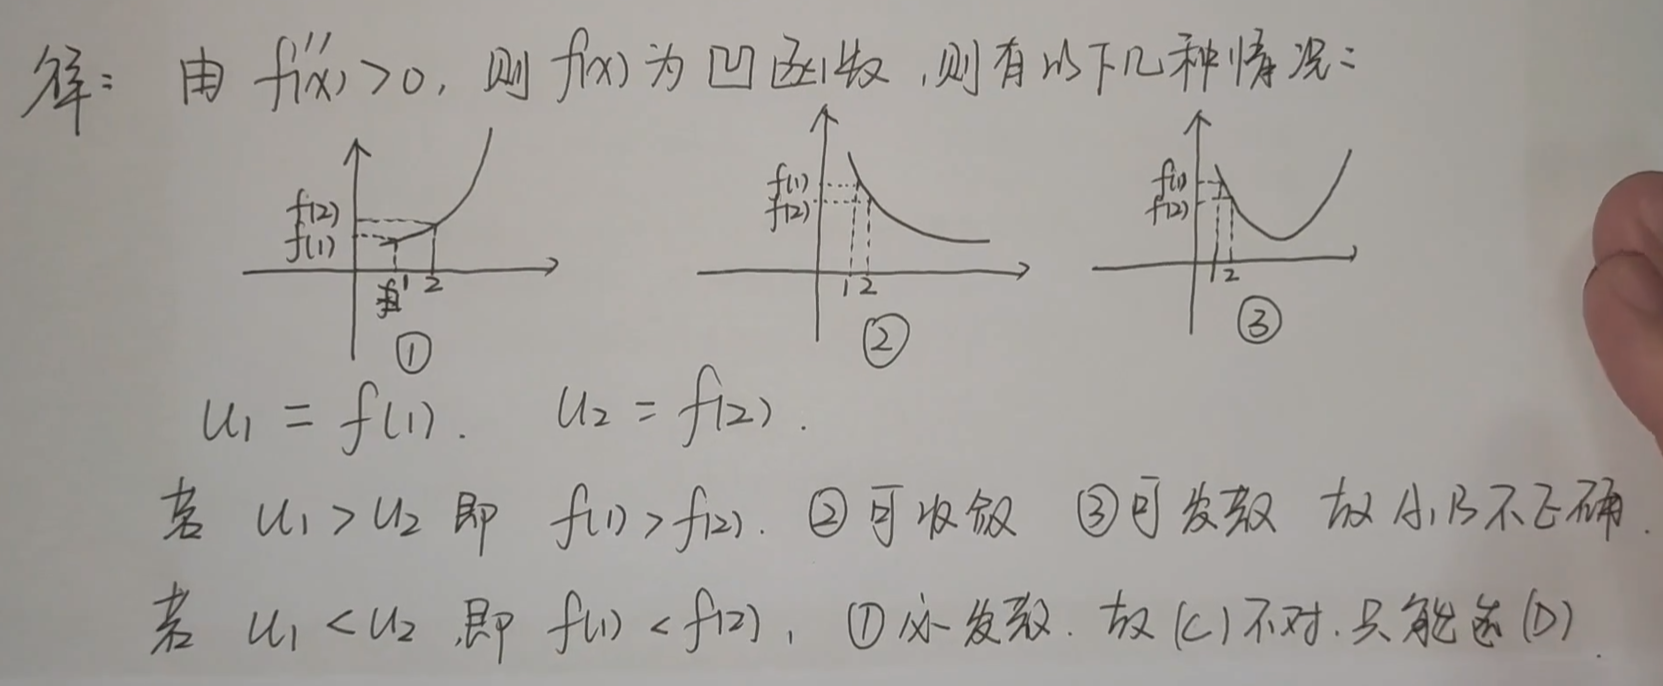 解: 由 f''(x) > 0, 则 f(x) 为 凹函数, 则有以下几种情况:
f(2) f(1) 1 2 ①
f(1) f(2) 1 2 ②
f(1) f(2) 1 2 ③
u₁ = f(1). u₂ = f(2).
若 u₁ > u₂ 即 f(1) > f(2). ②可收敛 ③可发散 故A,B不正确.
若 u₁ < u₂ 即 f(1) < f(2), ①必发散. 故(C)不对. 只能选(D).